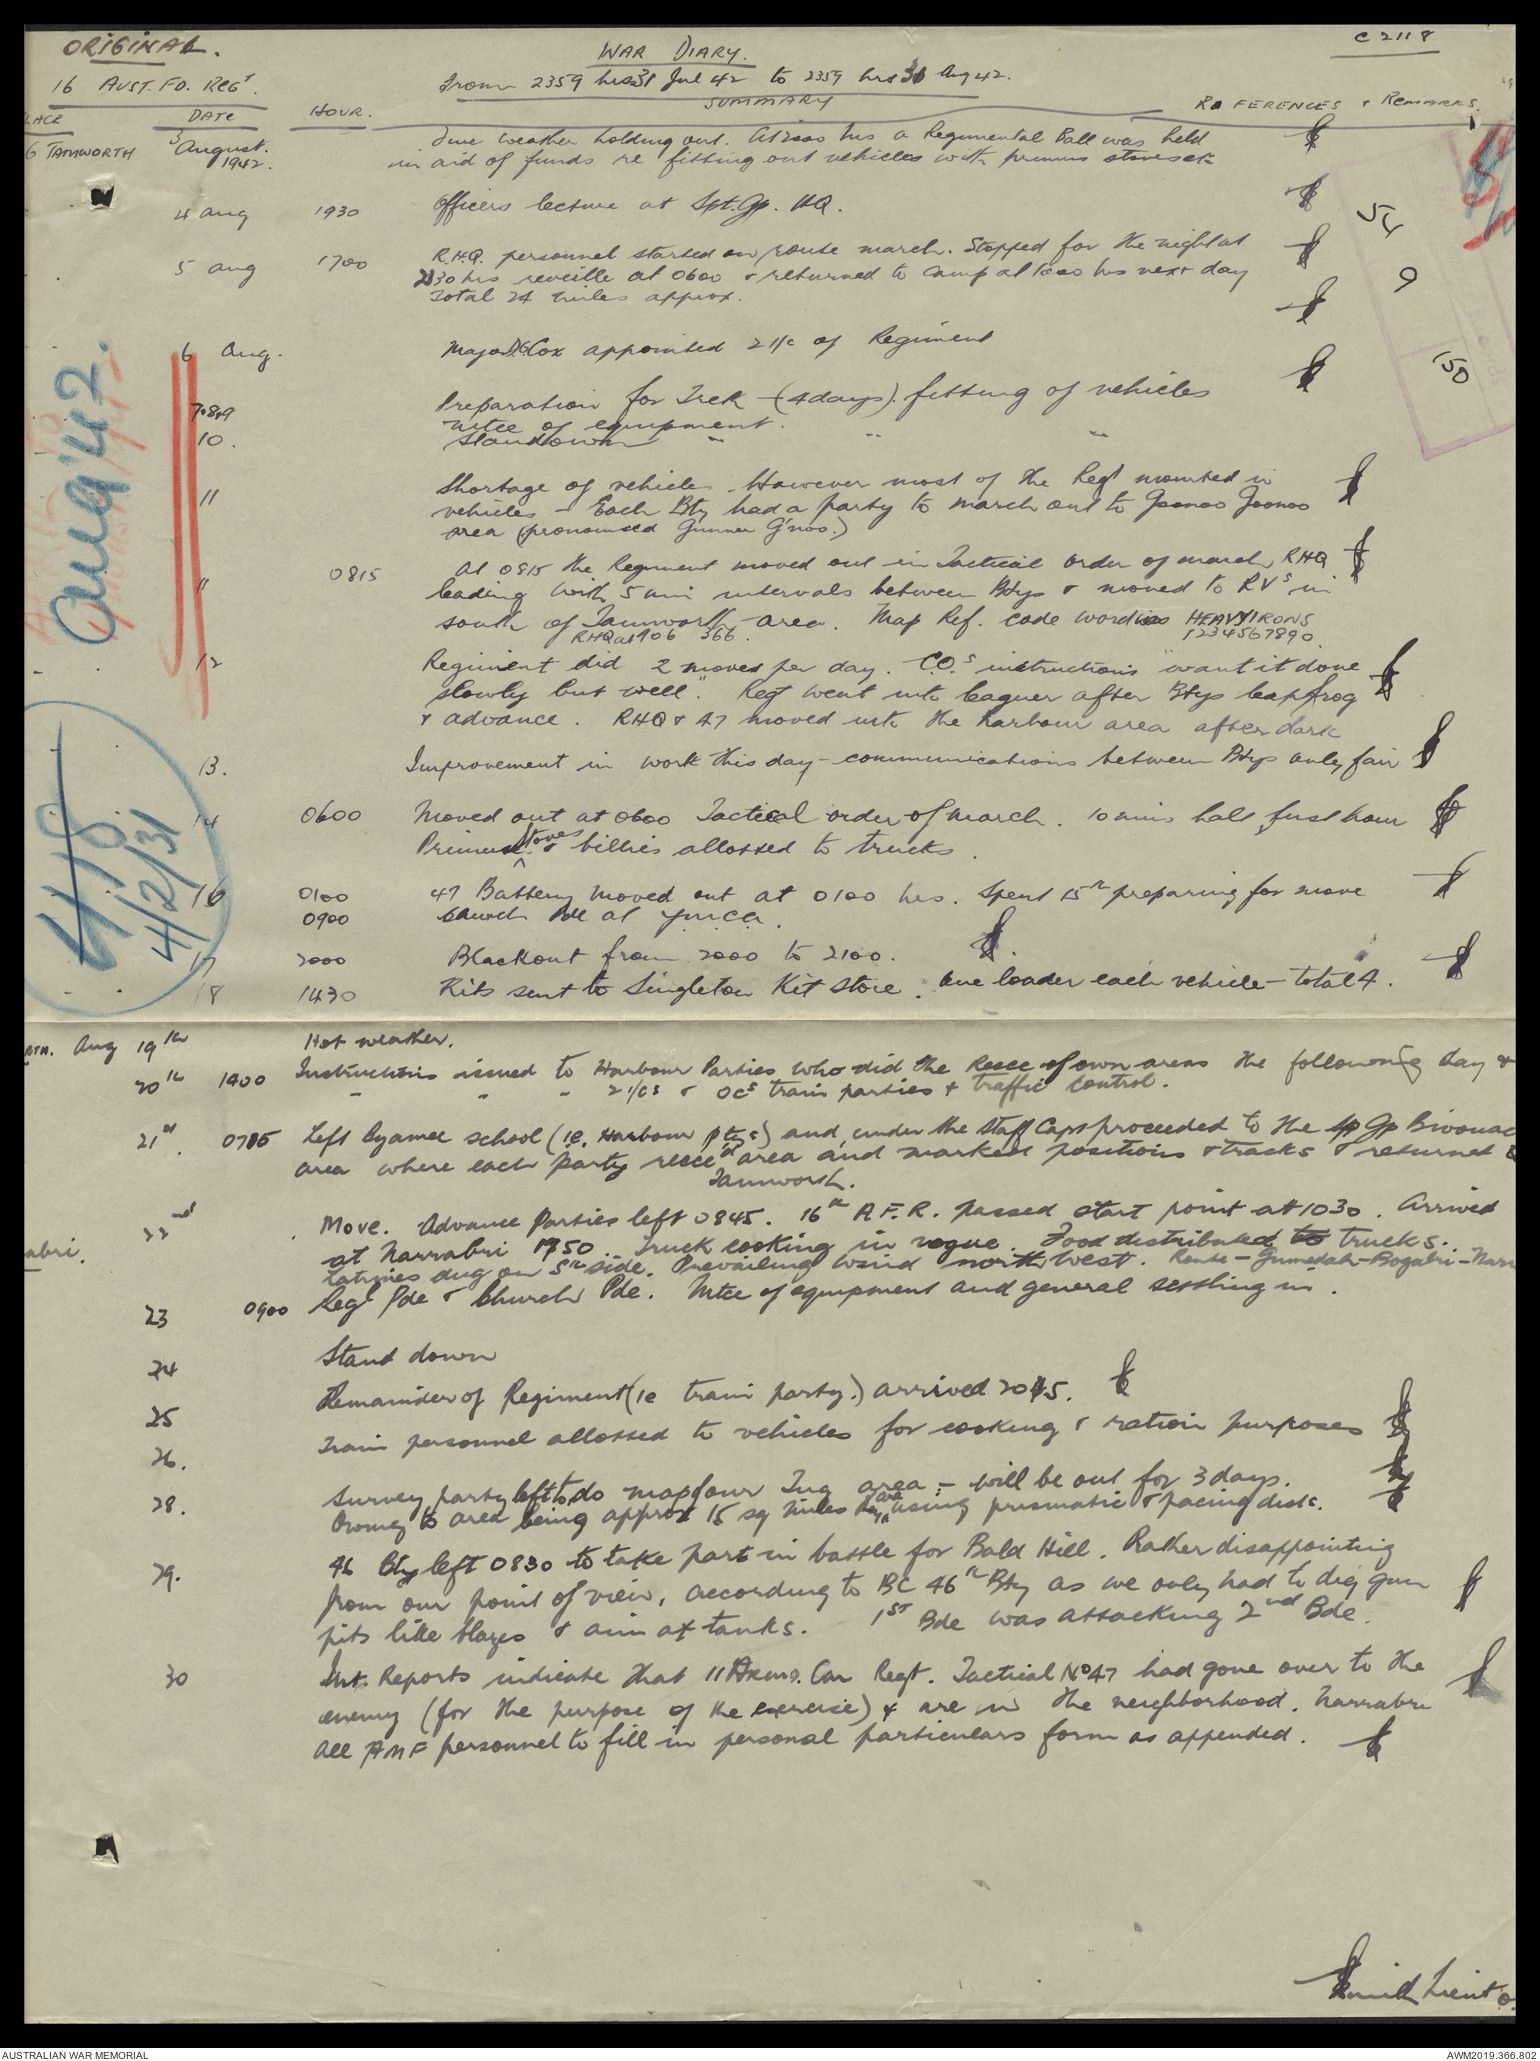 ORIGINAL.
C 2118
WAR DIARY.
16 AUST. FD. REGT.
From 2359 hrs 31 Jul 42 to 2359 hrs 31 Aug 42.
LACE DATE HOUR. SUMMARY REFERENCES & REMARKS.
TAMWORTH 3 August. 1942. Fine weather holding out. At 2000 hrs a Regimental Ball was held
in aid of funds re fitting out vehicles with primus stoves etc
4 Aug 1930 Officers lecture at Spt. Gp. HQ.
5 Aug 1700 R.H.Q. personnel started on route march. Stopped for the night at
2230 hrs reveille at 0600 & returned to camp at 1000 hrs next day
Total 24 miles approx.
6 Aug. Major D.G. Cox appointed 2 i/c of Regiment
7.8.9 Preparation for Trek - (4 days). fitting of vehicles
mtce of equipment.
10. Standown " " "
11 Shortage of vehicles. However most of the Regt mounted in
vehicles - Each Bty had a party to march out to Goonoo Goonoo
area (pronounced Gunner G'noo.)
11 0815 At 0815 the Regiment moved out in Tactical order of march, RHQ
leading with 5 min intervals between Btys & moved to RVs in
south of Tamworth area. Map Ref. code word was HEAVYIRONS
RHQ at 906 366. 1234567890
12 Regiment did 2 moves per day. C.O.s instructions "want it done
slowly but well." Regt went into leaguer after Btys leapfrog
& advance. RHQ & 47 moved into the harbour area after dark
13. Improvement in work this day - communications between Btys only fair
14 0600 Moved out at 0600 Tactical order of march. 10 mins halt first hour
Primus stoves & billies allotted to trucks.
16 0100 47 Battery moved out at 0100 hrs. Spent 15th preparing for move
0900 Church Pde at Y.M.C.A.
17 2000 Blackout from 2000 to 2100.
18 1430 Kits sent to Singleton Kit Store. One loader each vehicle - total 4.
Aug '42.
418
4/2/31
54
9
150
RTH. Aug 19th Hot weather.
20th 1400 Instructions issued to Harbour Parties who did the Recce of own areas the following day &
" " " 2 i/cs & OCs train parties & traffic control.
21st. 0715 Left Oyamee school (i.e. Harbour ptys) and under the Staff Capt proceeded to the Sp Gp Bivouac
area where each party recced area and marked positions & tracks & returned
Tamworth.
22nd Move. Advance Parties left 0845. 16th A.F.R. passed start point at 1030. Arrived
abri. at Narrabri 1750. Truck cooking in vogue. Food distributed to trucks.
Latrines dug on Sth side. Prevailing wind north west. Route - Gunnedah - Boggabri - Narr
23 0900 Regtl Pde & Church Pde. Mtce of equipment and general settling in.
24 Stand down
25 Remainder of Regiment (ie train party.) arrived 2045.
26. Train personnel allotted to vehicles for cooking & ration purposes
28. Survey party left to do map four Trig area - will be out for 3 days.
Owing to area being approx 15 sq miles they are using prismatic & pacing disk.
29. 46 Bty left 0830 to take part in battle for Bald Hill. Rather disappointing
from our point of view, according to BC 46th Bty as we only had to dig gun
pits like blazes & aim at tanks. 1ST Bde was attacking 2nd Bde.
30 Int. Reports indicate that 11 Armd. Car Regt. Tactical No 47 had gone over to the
enemy (for the purpose of the exercise) & are in the neighborhood. Narrabri
All AMF personnel to fill in personal particulars form as appended.
Lieut
AUSTRALIAN WAR MEMORIAL
AWM2019.366.802